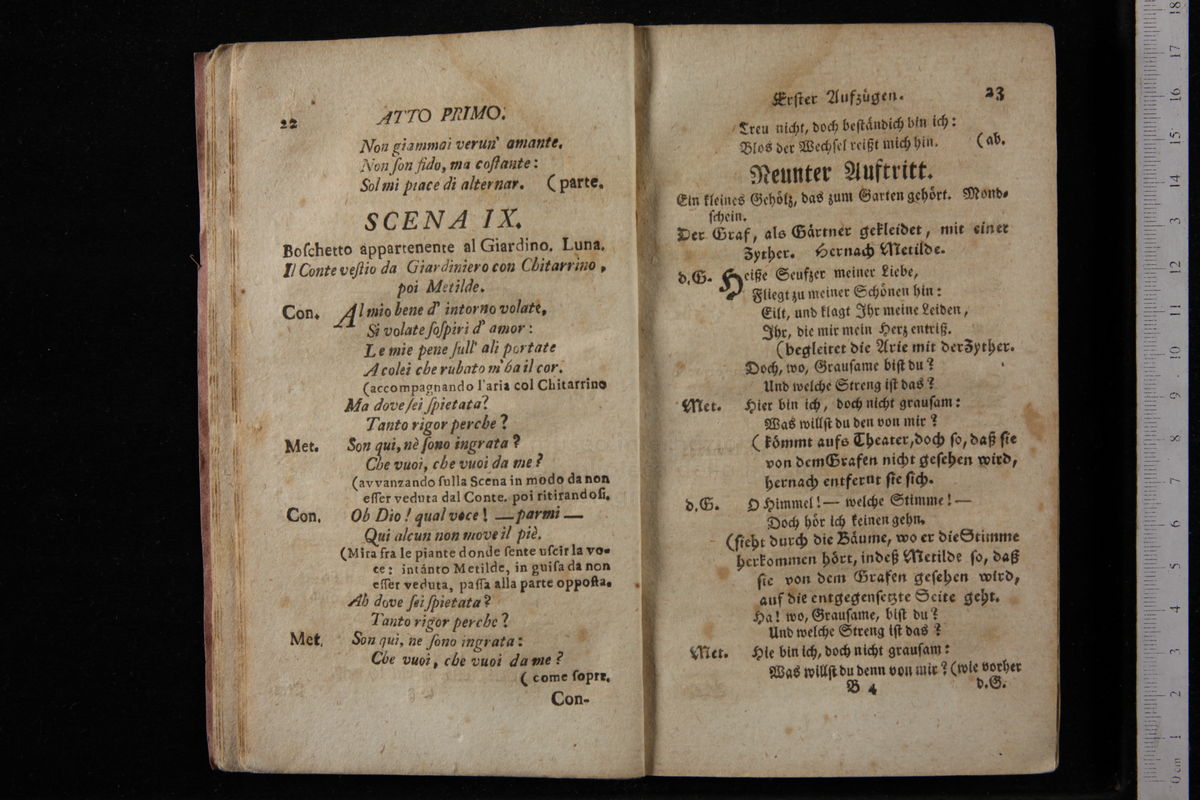 22
ATTO PRIMO.
Non giammai verun' amante.
Non ſon fido, ma coſtante:
Sol mi piace di alternar. (parte.
SCENA IX.
Boſchetto appartenente al Giardino. Luna.
Il Conte veſtio da Giardiniero con Chitarrino,
poi Metilde.
Con. Al mio bene d' intorno volate,
Si volate ſoſpiri d' amor:
Le mie pene ſull' ali portate
A colei che rubato m'ha il cor.
(accompagnando l'aria col Chitarrino
Ma dove ſei ſpietata?
Tanto rigor perche?
Met. Son qui, nè ſono ingrata?
Che vuoi, che vuoi da me?
(avvanzando ſulla Scena in modo da non
eſſer veduta dal Conte. poi ritirandoſi.
Con. Oh Dio! qual voce! — parmi —
Qui alcun non move il piè.
(Mira fra le piante donde ſente uſcir la vo-
ce: intánto Metilde, in guiſa da non
eſſer veduta, paſſa alla parte oppoſta.
Ah dove ſei ſpietata?
Tanto rigor perche?
Met. Son qui, ne ſono ingrata:
Che vuoi, che vuoi da me?
(come ſopre.
Con-
Erſter Aufzügen.
23
Treu nicht, doch beſtändich bin ich:
Blos der Wechſel reißt mich hin. (ab.
Neunter Auftritt.
Ein kleines Gehölz, das zum Garten gehört. Mond-
ſchein.
Der Graf, als Gärtner gekleidet, mit einer
Zyther. Hernach Metilde.
d.G. Heiße Seufzer meiner Liebe,
Fliegt zu meiner Schönen hin:
Eilt, und klagt Ihr meine Leiden,
Ihr, die mir mein Herz entriß.
(begleitet die Arie mit der Zyther.
Doch, wo, Grauſame biſt du?
Und welche Streng iſt das?
Met. Hier bin ich, doch nicht grauſam:
Was willſt du den von mir?
(kömmt aufs Theater, doch ſo, daß ſie
von dem Grafen nicht geſehen wird,
hernach entfernt ſie ſich.
d.G. O Himmel! — welche Stimme! —
Doch hör ich keinen gehn.
(ſieht durch die Bäume, wo er die Stimme
herkommen hört, indeß Metilde ſo, daß
ſie von dem Grafen geſehen wird,
auf die entgegenſetzte Seite geht.
Ha! wo, Grauſame, biſt du?
Und welche Streng iſt das?
Met. Hie bin ich, doch nicht grauſam:
Was willſt du denn von mir? (wie vorher
B 4 d.G.
0 cm 1 2 3 4 5 6 7 8 9 10 11 12 13 14 15 16 17 18